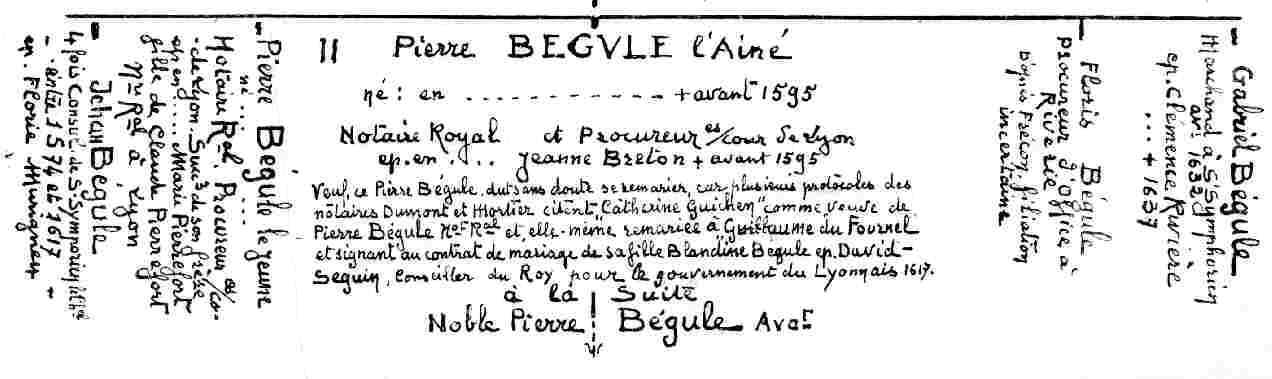 Jehan Bégule
4 fois Consul de St Symphorien
- entre 1574 et 1617 -
ep. Florie Mungnery
Pierre Bégule le jeune
né ... ...
Notaire Ral. Procureur es/co-
-de Lyon. Sucr de son frère
ep. en .... Marie Pierrefort
fille de Claude Pierrefort
Nre Ral à Lyon
II Pierre BEGVLE l'Ainé
né : en ............ + avant 1595
Notaire Royal et Procureur es/cour de Lyon
ep. en ... Jeanne Breton + avant 1595
Veuf, ce Pierre Bégule dut sans doute se remarier, car plusieurs protocoles des
notaires Dumont et Mortier citent "Catherine Guichen" comme veuve de
Pierre Bégule Not Ral et, elle-même, remariée à Guillaume du Fournel
et signant au contrat de mariage de sa fille Blandine Begule ep. David-
Seguin, Conseiller du Roy pour le gouvernement du Lyonnais 1617.
à la Suite
Noble Pierre Bégule Avat
Floris Bégule
Procureur d'Office à
Riverie
D'après Frécon. filiation
incertaine
Gabriel Bégule
Marchand à St Symphorien
av. 1632
ep. Clémence Ruvière
... + 1637